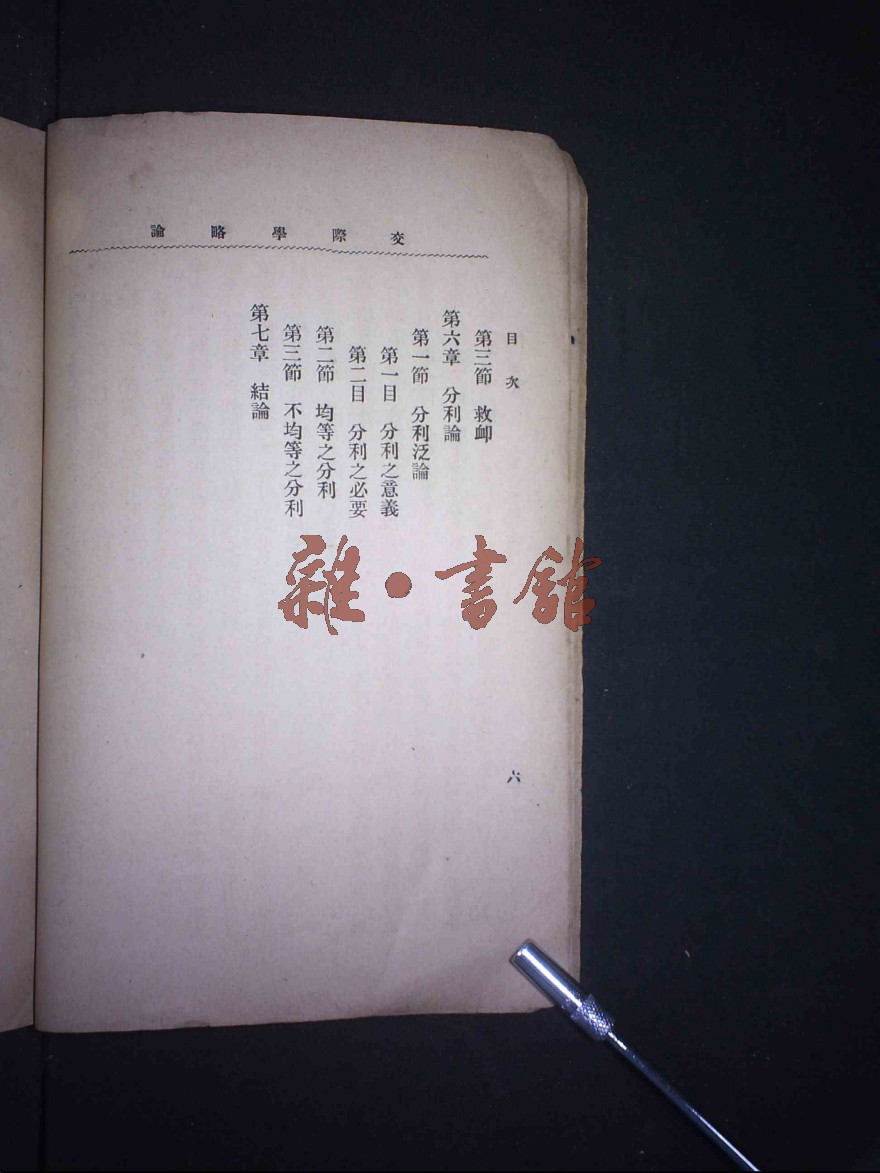 交際學略論
目次
第三節 救卹
第六章 分利論
第一節 分利泛論
第一目 分利之意義
第二目 分利之必要
第二節 均等之分利
第三節 不均等之分利
第七章 結論
六
雜·書館